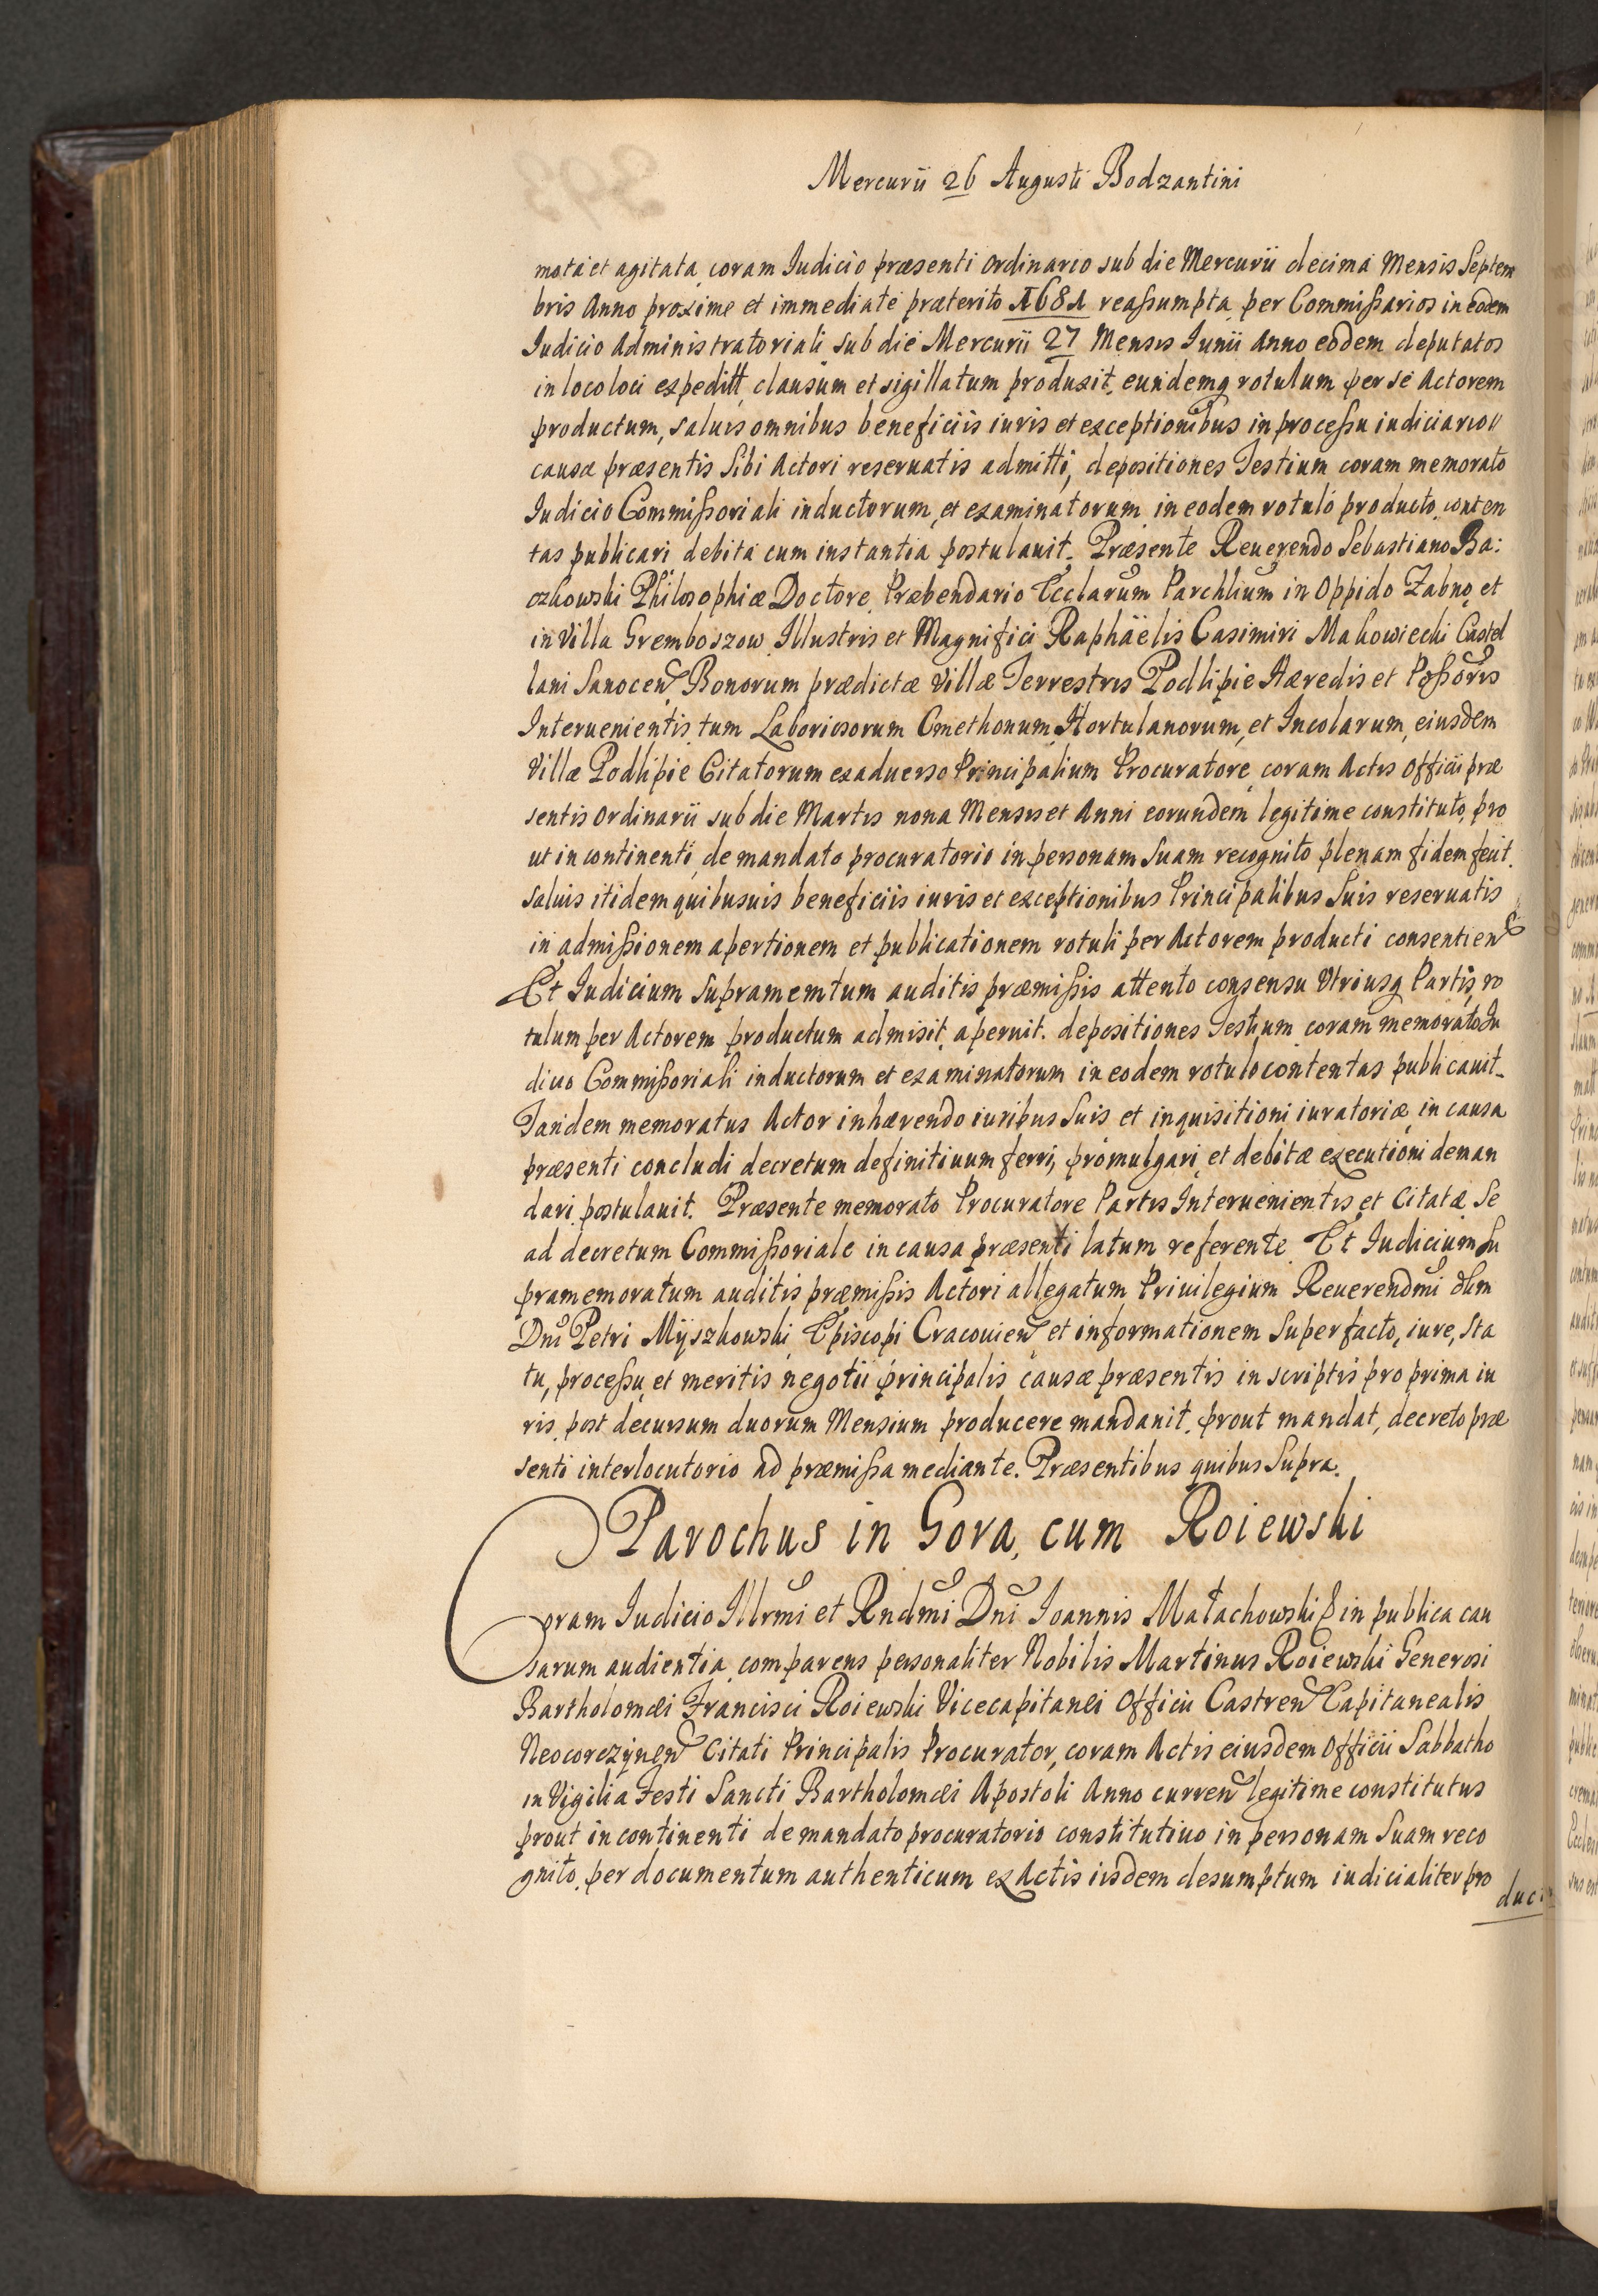 Mercurii 26 Augusti Bodzantini
mota et agitata coram Iudicio præsenti Ordinario sub die Mercurii decima Mensis Septem
bris Anno proxime et immediate præterito 1681 reassumpta per Commissarios in eodem
Iudicio Administratoriali sub die Mercurii 27 Mensis Iunii Anno eodem deputatos
in loco loci expeditt clausum et sigillatum produxit, eundemq rotulum per se Actorem
productum, saluis omnibus beneficiis iuris et exceptionibus in processu iudiciario
causæ præsentis Sibi Actori reseruatis admitti, depositiones Testium coram memorato
Iudicio Commissoriali inductorum, et examinatorum in eodem rotulo producto conten
tas publicari debita cum instantia postulauit. Præsente Reuerendo Sebastiano Ba:
czkowski Philosophiæ Doctore Præbendario Ecclarum Parchlium in Oppido Zabno et
in Villa Gremboszow Illustris et Magnifici Raphaëlis Casimiri Makowiecki Castel
lani Sanocen Bonorum prædictæ Villæ Terrestris Podlipie Hæredis et Possoris
Interuenientis tum Laboriosorum Cmethonum, Hortulanorum, et Incolarum eiusdem
Villæ Podlipie Citatorum ex aduerso Principalium Procuratore coram Actis Officii præ
sentis Ordinarii sub die Martis nona Mensis et Anni eorundem legitime constituto, pro
ut in continenti de mandato procuratorio in personam Suam recognito plenam fidem fecit.
saluis itidem quibusuis beneficiis iuris et exceptionibus Principalibus Suis reseruatis
in admissionem apertionem et publicationem rotuli per Actorem producti consentien
Et Iudicium Supramemtum auditis præmissis attento consensu Vtriusq Partis ro
tulum per Actorem productum admisit, aperuit. depositiones Testium coram memorato Iu
dicio Commissoriali inductorum et examinatorum in eodem rotulo contentas publicauit.
Tandem memoratus Actor inhærendo iuribus Suis et inquisitioni iuratoriæ in causa
præsenti concludi decretum definitiuum ferri, promulgari et debitæ executioni deman
dari postulauit. Præsente memorato Procuratore Partis Interuenientis et Citatæ Se
ad decretum Commissoriale in causa præsenti latum referente. Et Iudicium Su
pramemoratum auditis præmissis Actori allegatum Priuilegium Reuerendmi olim
Dni Petri Myszkowski Episcopi Cracouien et informationem Super facto, iure, sta
tu, processu et meritis negotii principalis causæ præsentis in scriptis pro prima iu
ris post decursum duorum Mensium producere mandauit, prout mandat, decreto præ
senti interlocutorio ad præmissa mediante. Præsentibus quibus Supra.
Parochus in Gora, cum Roiewski
Coram Iudicio Illrmi et Rndmi Dni Ioannis Małachowski in publica cau
sarum audientia comparens personaliter Nobilis Martinus Roiewski Generosi
Bartholomæi Francisci Roiewski Vicecapitanei Officii Castren Capitanealis
Neocorczynen Citati Principalis Procurator, coram Actis eiusdem Officii Sabbatho
in Vigilia Festi Sancti Bartholomæi Apostoli Anno curren legitime constitutus
prout in continenti de mandato procuratorio constitutiuo in personam Suam reco
gnito, per documentum authenticum ex Actis iisdem desumptum iudicialiter pro
duc